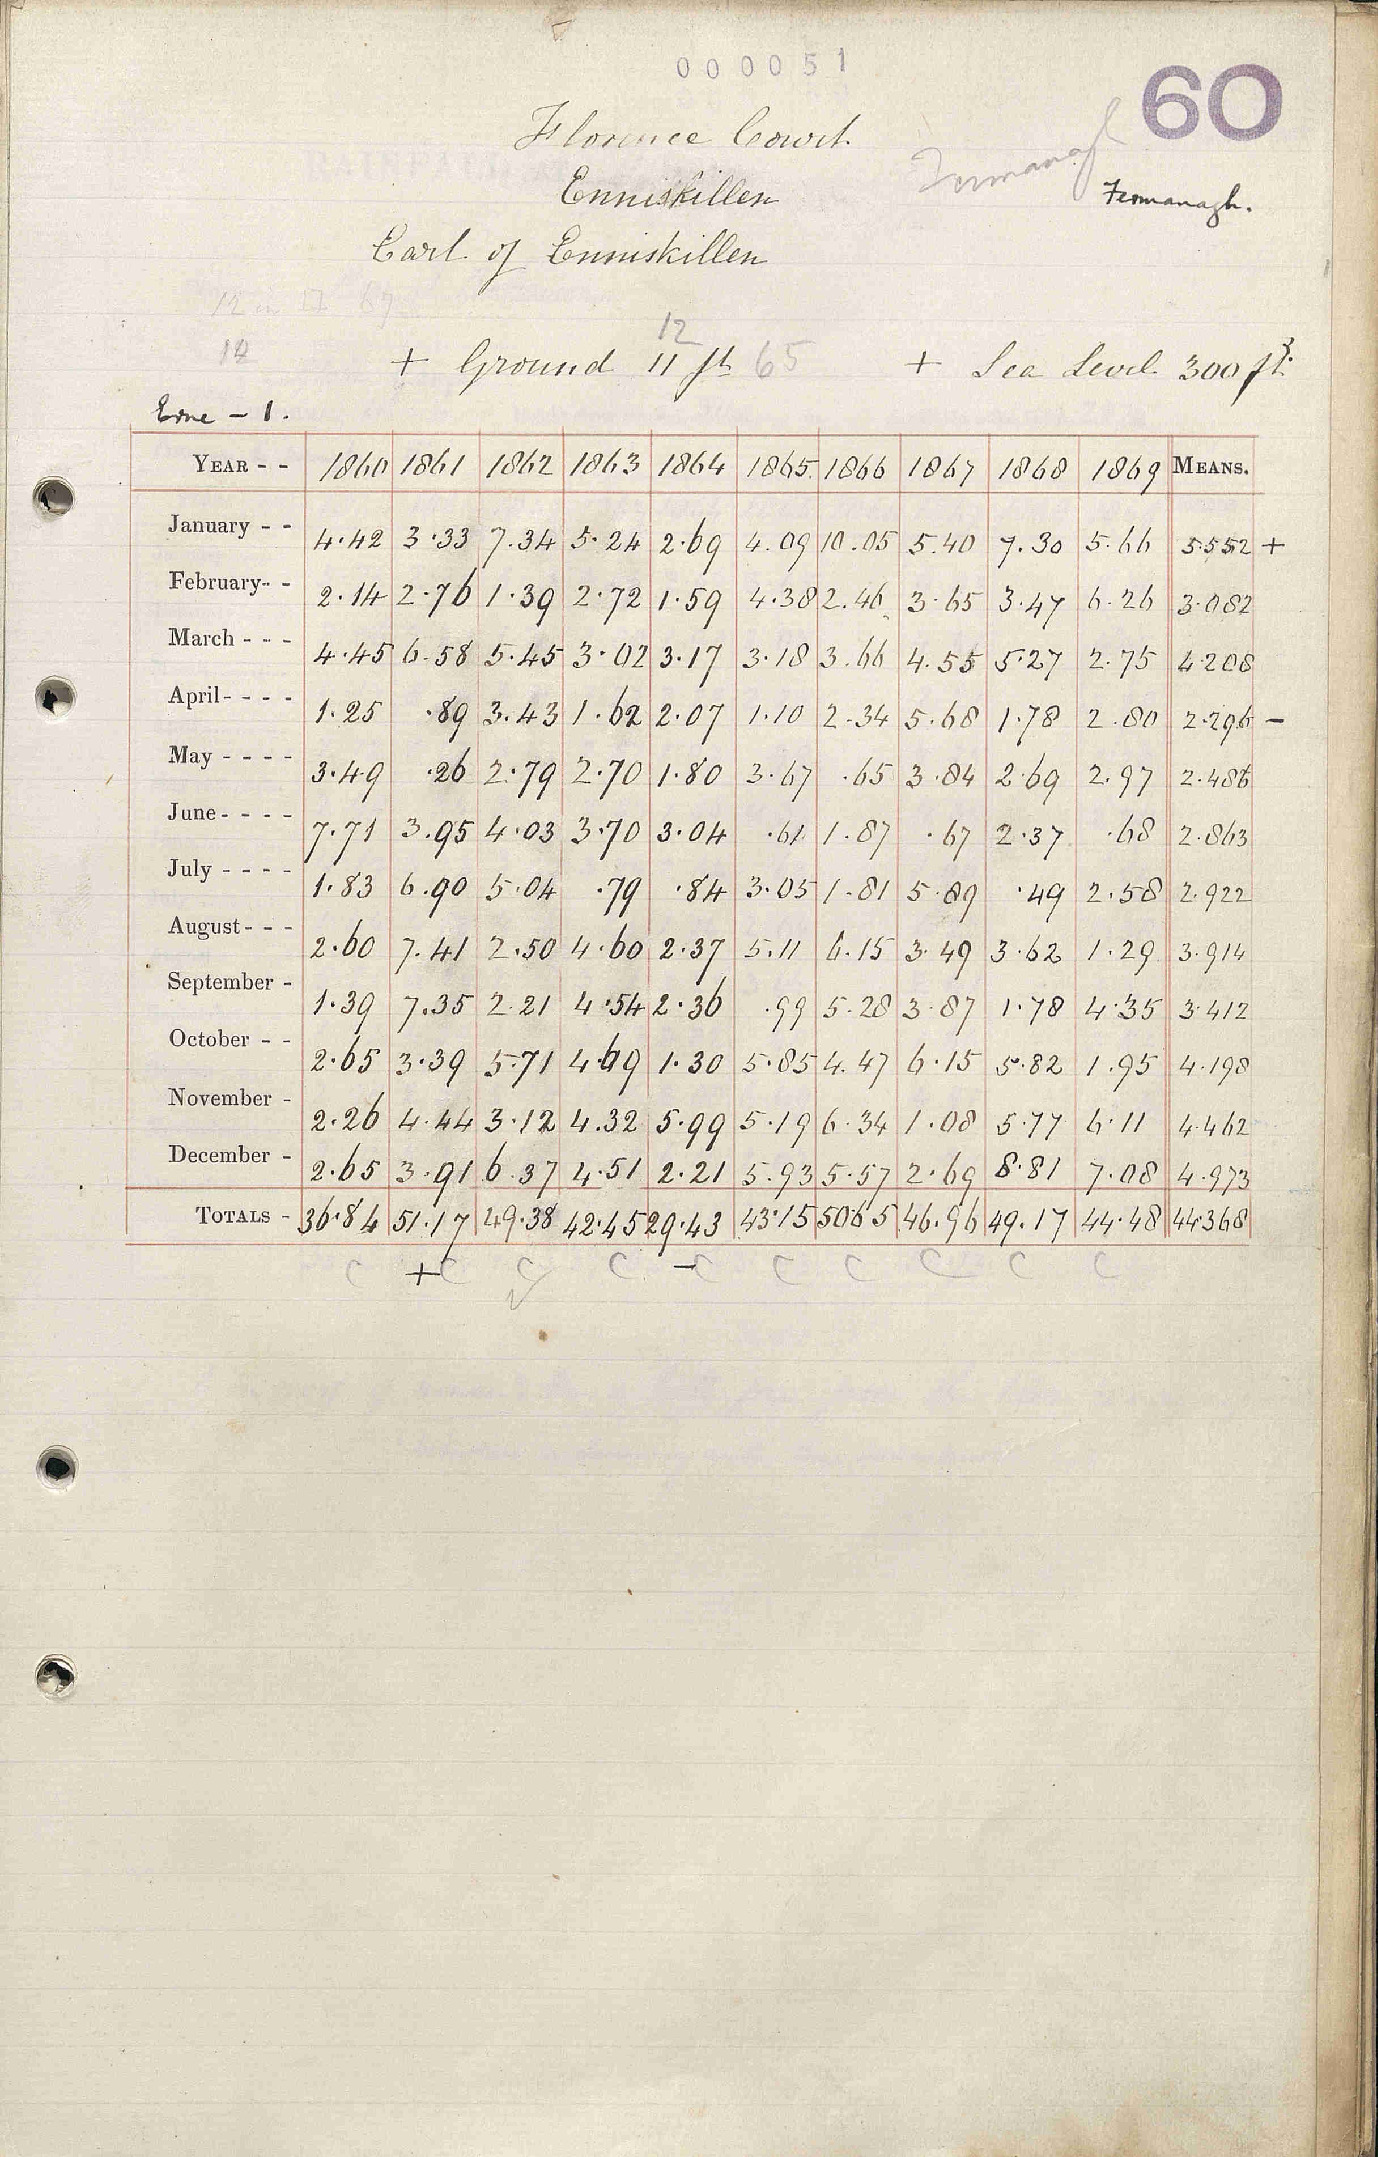 000051
60
Florence Court
Fermanagh
Enniskillen
Fermanagh.
Earl of Enniskillen
14
12
+ Ground 11 ft 65 + Sea Level 300 ft.
Erne - 1.
YEAR - - 1860 1861 1862 1863 1864 1865 1866 1867 1868 1869 MEANS.
January - - 4.42 3.33 7.34 5.24 2.69 4.09 10.05 5.40 7.30 5.66 5.552 +
February - - 2.14 2.76 1.39 2.72 1.59 4.38 2.46 3.65 3.47 6.26 3.082
March - - - 4.45 6.58 5.45 3.02 3.17 3.18 3.66 4.55 5.27 2.75 4.208
April - - - - 1.25 .89 3.43 1.62 2.07 1.10 2.34 5.68 1.78 2.80 2.296 -
May - - - - 3.49 .26 2.79 2.70 1.80 3.67 .65 3.84 2.69 2.97 2.486
June - - - - 7.71 3.95 4.03 3.70 3.04 .61 1.87 .67 2.37 .68 2.863
July - - - - 1.83 6.90 5.04 .79 .84 3.05 1.81 5.89 .49 2.58 2.922
August - - - 2.60 7.41 2.50 4.60 2.37 5.11 6.15 3.49 3.62 1.29 3.914
September - 1.39 7.35 2.21 4.54 2.36 .99 5.28 3.87 1.78 4.35 3.412
October - - 2.65 3.39 5.71 4.69 1.30 5.85 4.47 6.15 5.82 1.95 4.198
November - 2.26 4.44 3.12 4.32 5.99 5.19 6.34 1.08 5.77 6.11 4.462
December - 2.65 3.91 6.37 4.51 2.21 5.93 5.57 2.69 8.81 7.08 4.973
TOTALS - 36.84 51.17 49.38 42.45 29.43 43.15 50.65 46.96 49.17 44.48 44.368
C + C C C - C C C C C C